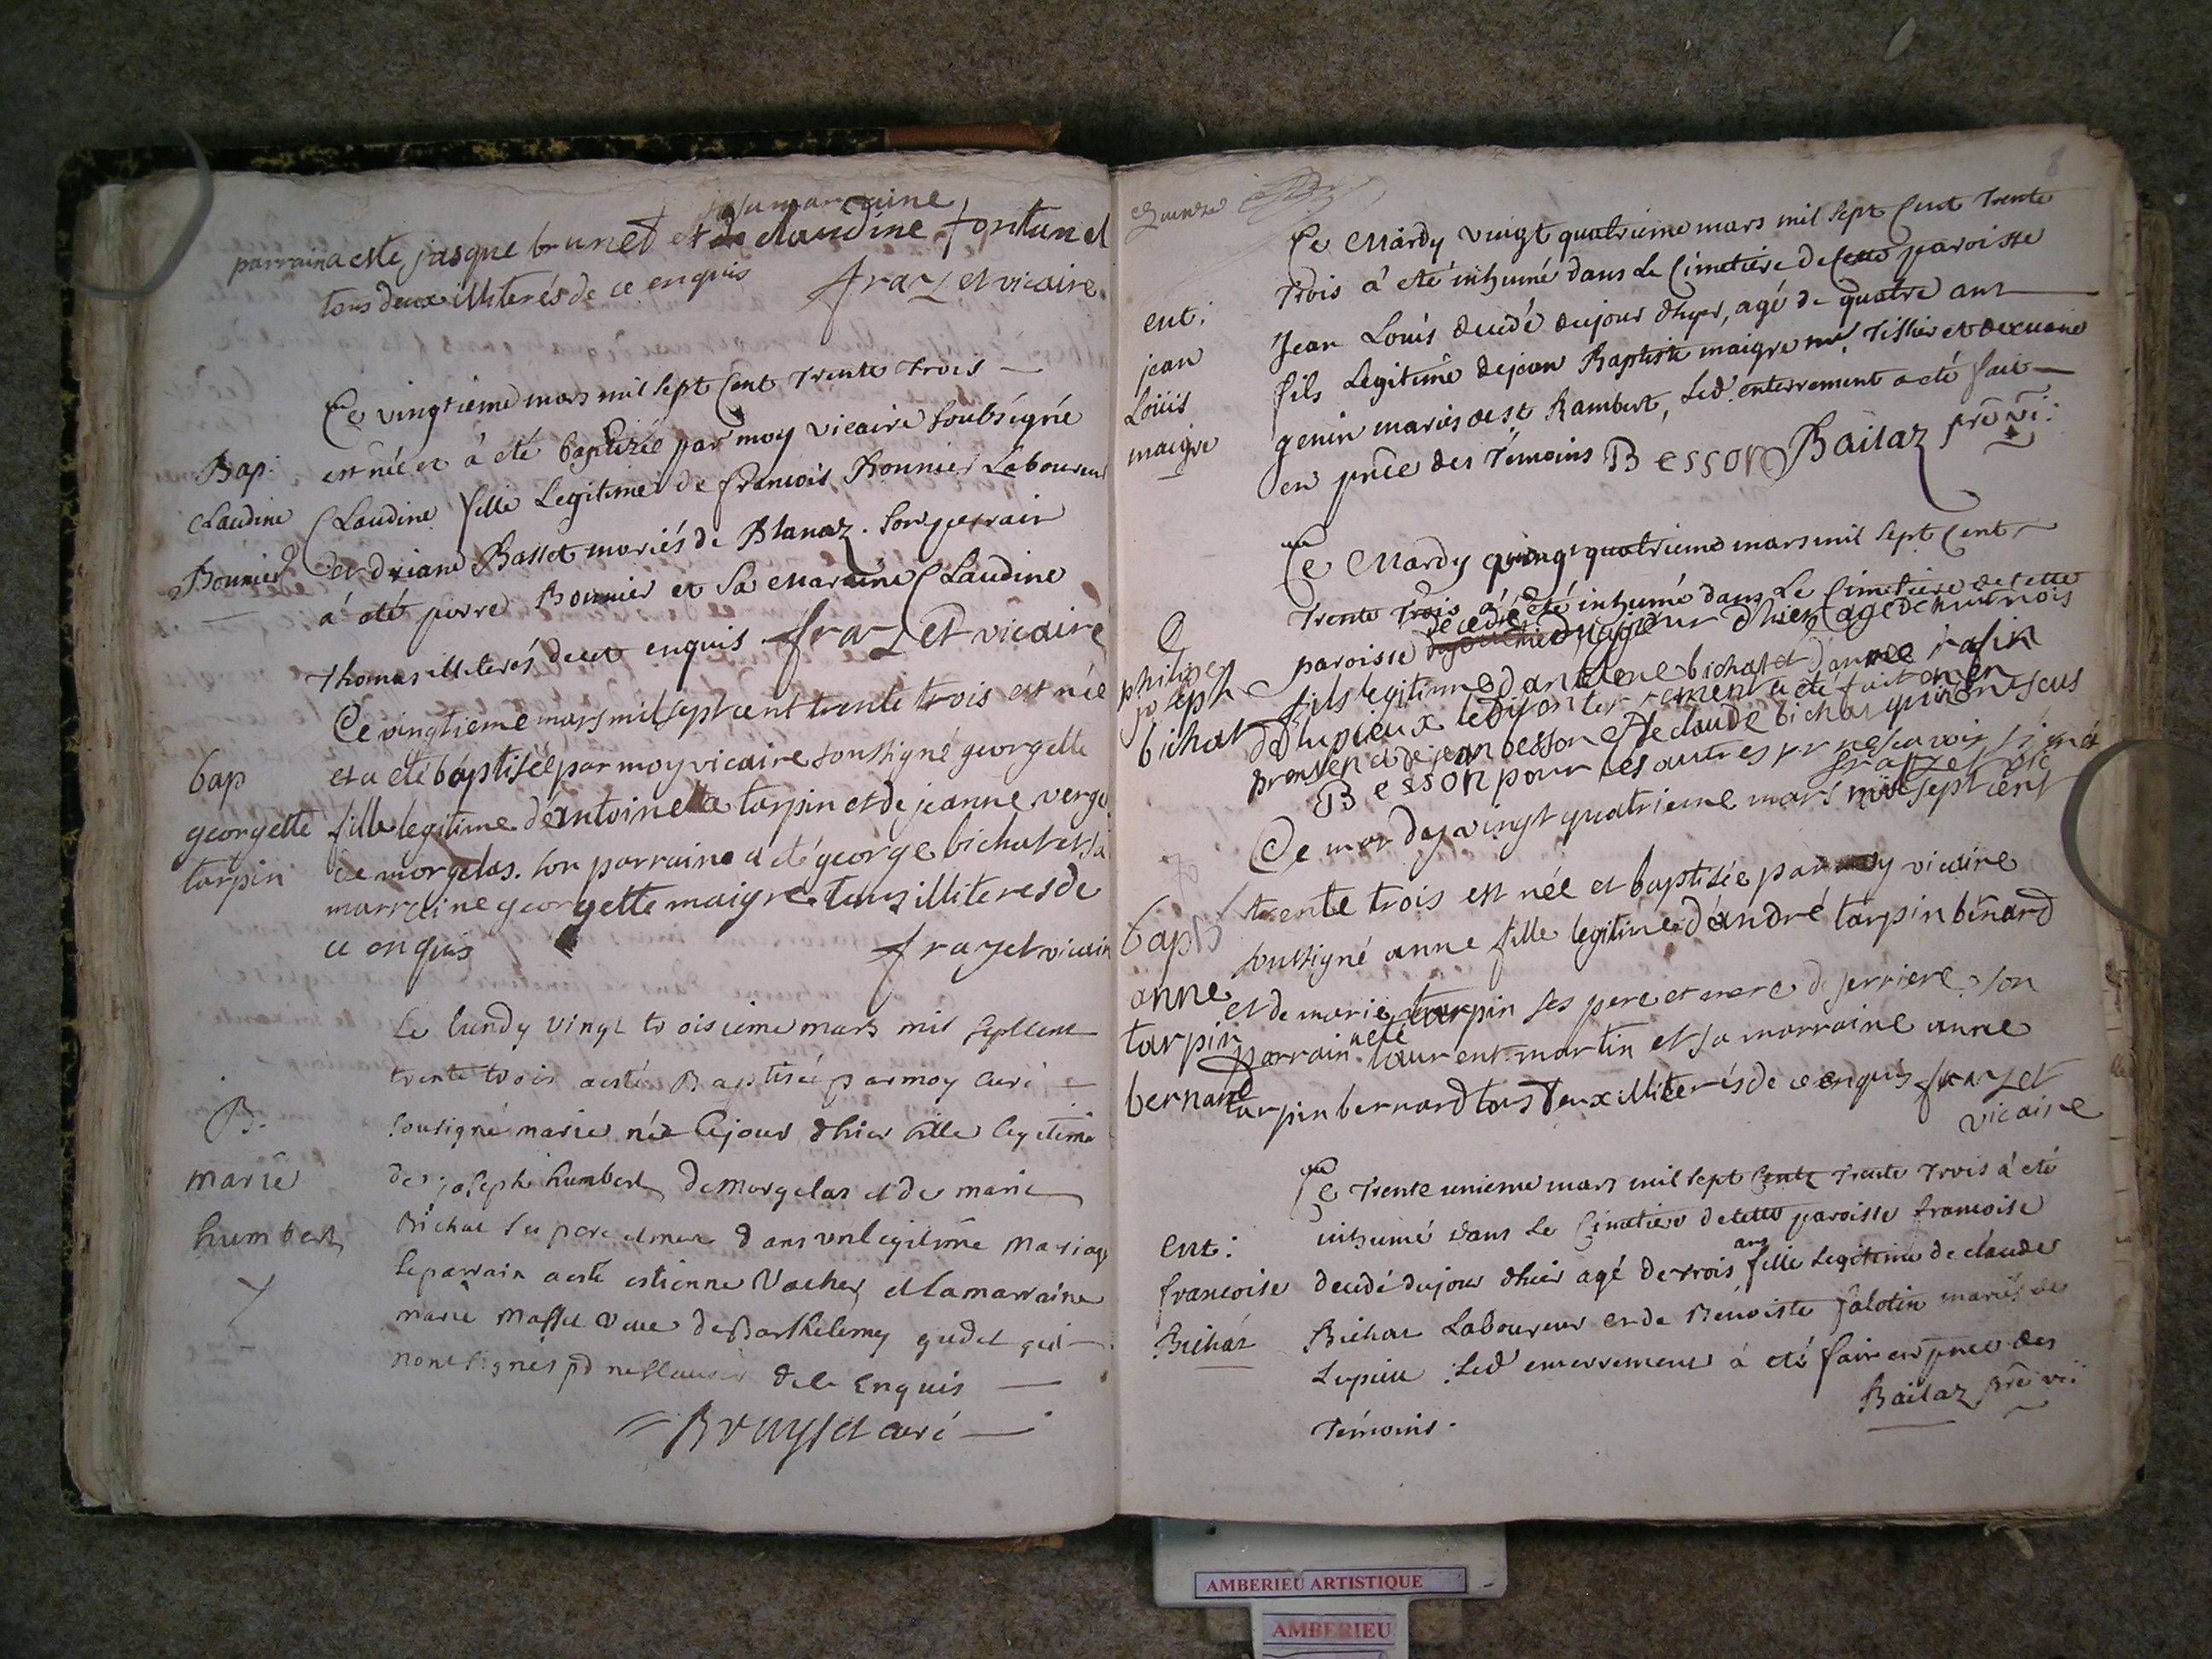 sa marraine
parrain a este jasque brunet et claudine fontanel
tous deux illiterés de ce enquis frazet vicaire.
Ce vingtieme mars mil sept Cent Trente Trois
Bap:
est née et à eté baptizée par moy vicaire soubsigné
Claudine
Claudine fille Legitime de francois Bonnier Laboureur
Bonnier
et driane Basset mariés de Blanaz. Son parrain
a été pierre Bonnier et Sa Maraine Claudine
Thomas illiterés de ce enquis frazet vicaire
Ce vingtieme mars mil sept cent trente trois est née
bap
et a eté baptisée par moy vicaire soussigné georgette
georgette
fille legitime d'antoine tarpin et de jeanne verge
tarpin
de morgelas. son parrain a eté george bichat et sa
marraine georgette maigre tous illiteres de
ce enquis
frazet vicaire
Le lundy vingt troisieme mars mil sept Cent
trente trois a esté Baptisée par moy Curé
B.
sousigné marie née le jour d'hier fille legitime
marie
de joseph humbert de Morgelas et de marie
humbert
Bichat ses pere et mere dans un legitime Mariage
le parrain a esté estienne Vacher et la marraine
marie Masset veuve de Barthelemy gudet qui
n'ont signés pour ne sçavoir de le Enquis
Brayset curé
Ce Mardy vingt quatrieme mars mil sept Cent Trente
ent:
Trois à eté inhumé dans Le Cimetiere de Cette paroisse
jean
Jean Louis decedé du jour d'hyer, agé de quatre ans
Loüis
fils Legitime de jean Baptiste maigre Tissier et de
maigre
genin mariés de St Rambert, Led. enterrement a eté fait
en pnce des Témoins Besson Bailaz pre vi:
Ce Mardy vingt quatrieme mars mil sept Cent
Trente Trois à été inhumé dans Le Cimetiere de cette
philipe
joseph
bichat
paroisse decedé du jour d'hier agé de huit mois
fils legitime d'antoine bichat et d'anne rasin
de lupieux ledit enterrement a eté fait en
presence de jean besson et de claude bichat
Besson pour les autres pr ne scavoir signé
frazet vic
Ce mardy vingt quatrieme mars mil sept cent
trente trois est née et baptisée par moy vicaire
bap
soussigné anne fille legitime d'andré tarpin bernard
anne
et de marie tarpin ses pere et mere de serriere. son
tarpin
parrain a eté laurent martin et sa marraine anne
bernard
tarpin bernard tous deux illiterés de ce enquis frazet
vicaire
Ce Trente unieme mars mil sept Cent Trente Trois à eté
ent:
inhumé dans Le Cimetiere de cette paroisse francoise
francoise
decedé du jour d'hier agé de trois ans fille Legitime de claude
Bichat
Bichat Laboureur et de Benoiste falotin mariés de
Lupieu. Led. enterrement à eté fait en pnce des
Témoins.
Bailaz pre vi:
AMBERIEU ARTISTIQUE
AMBERIEU